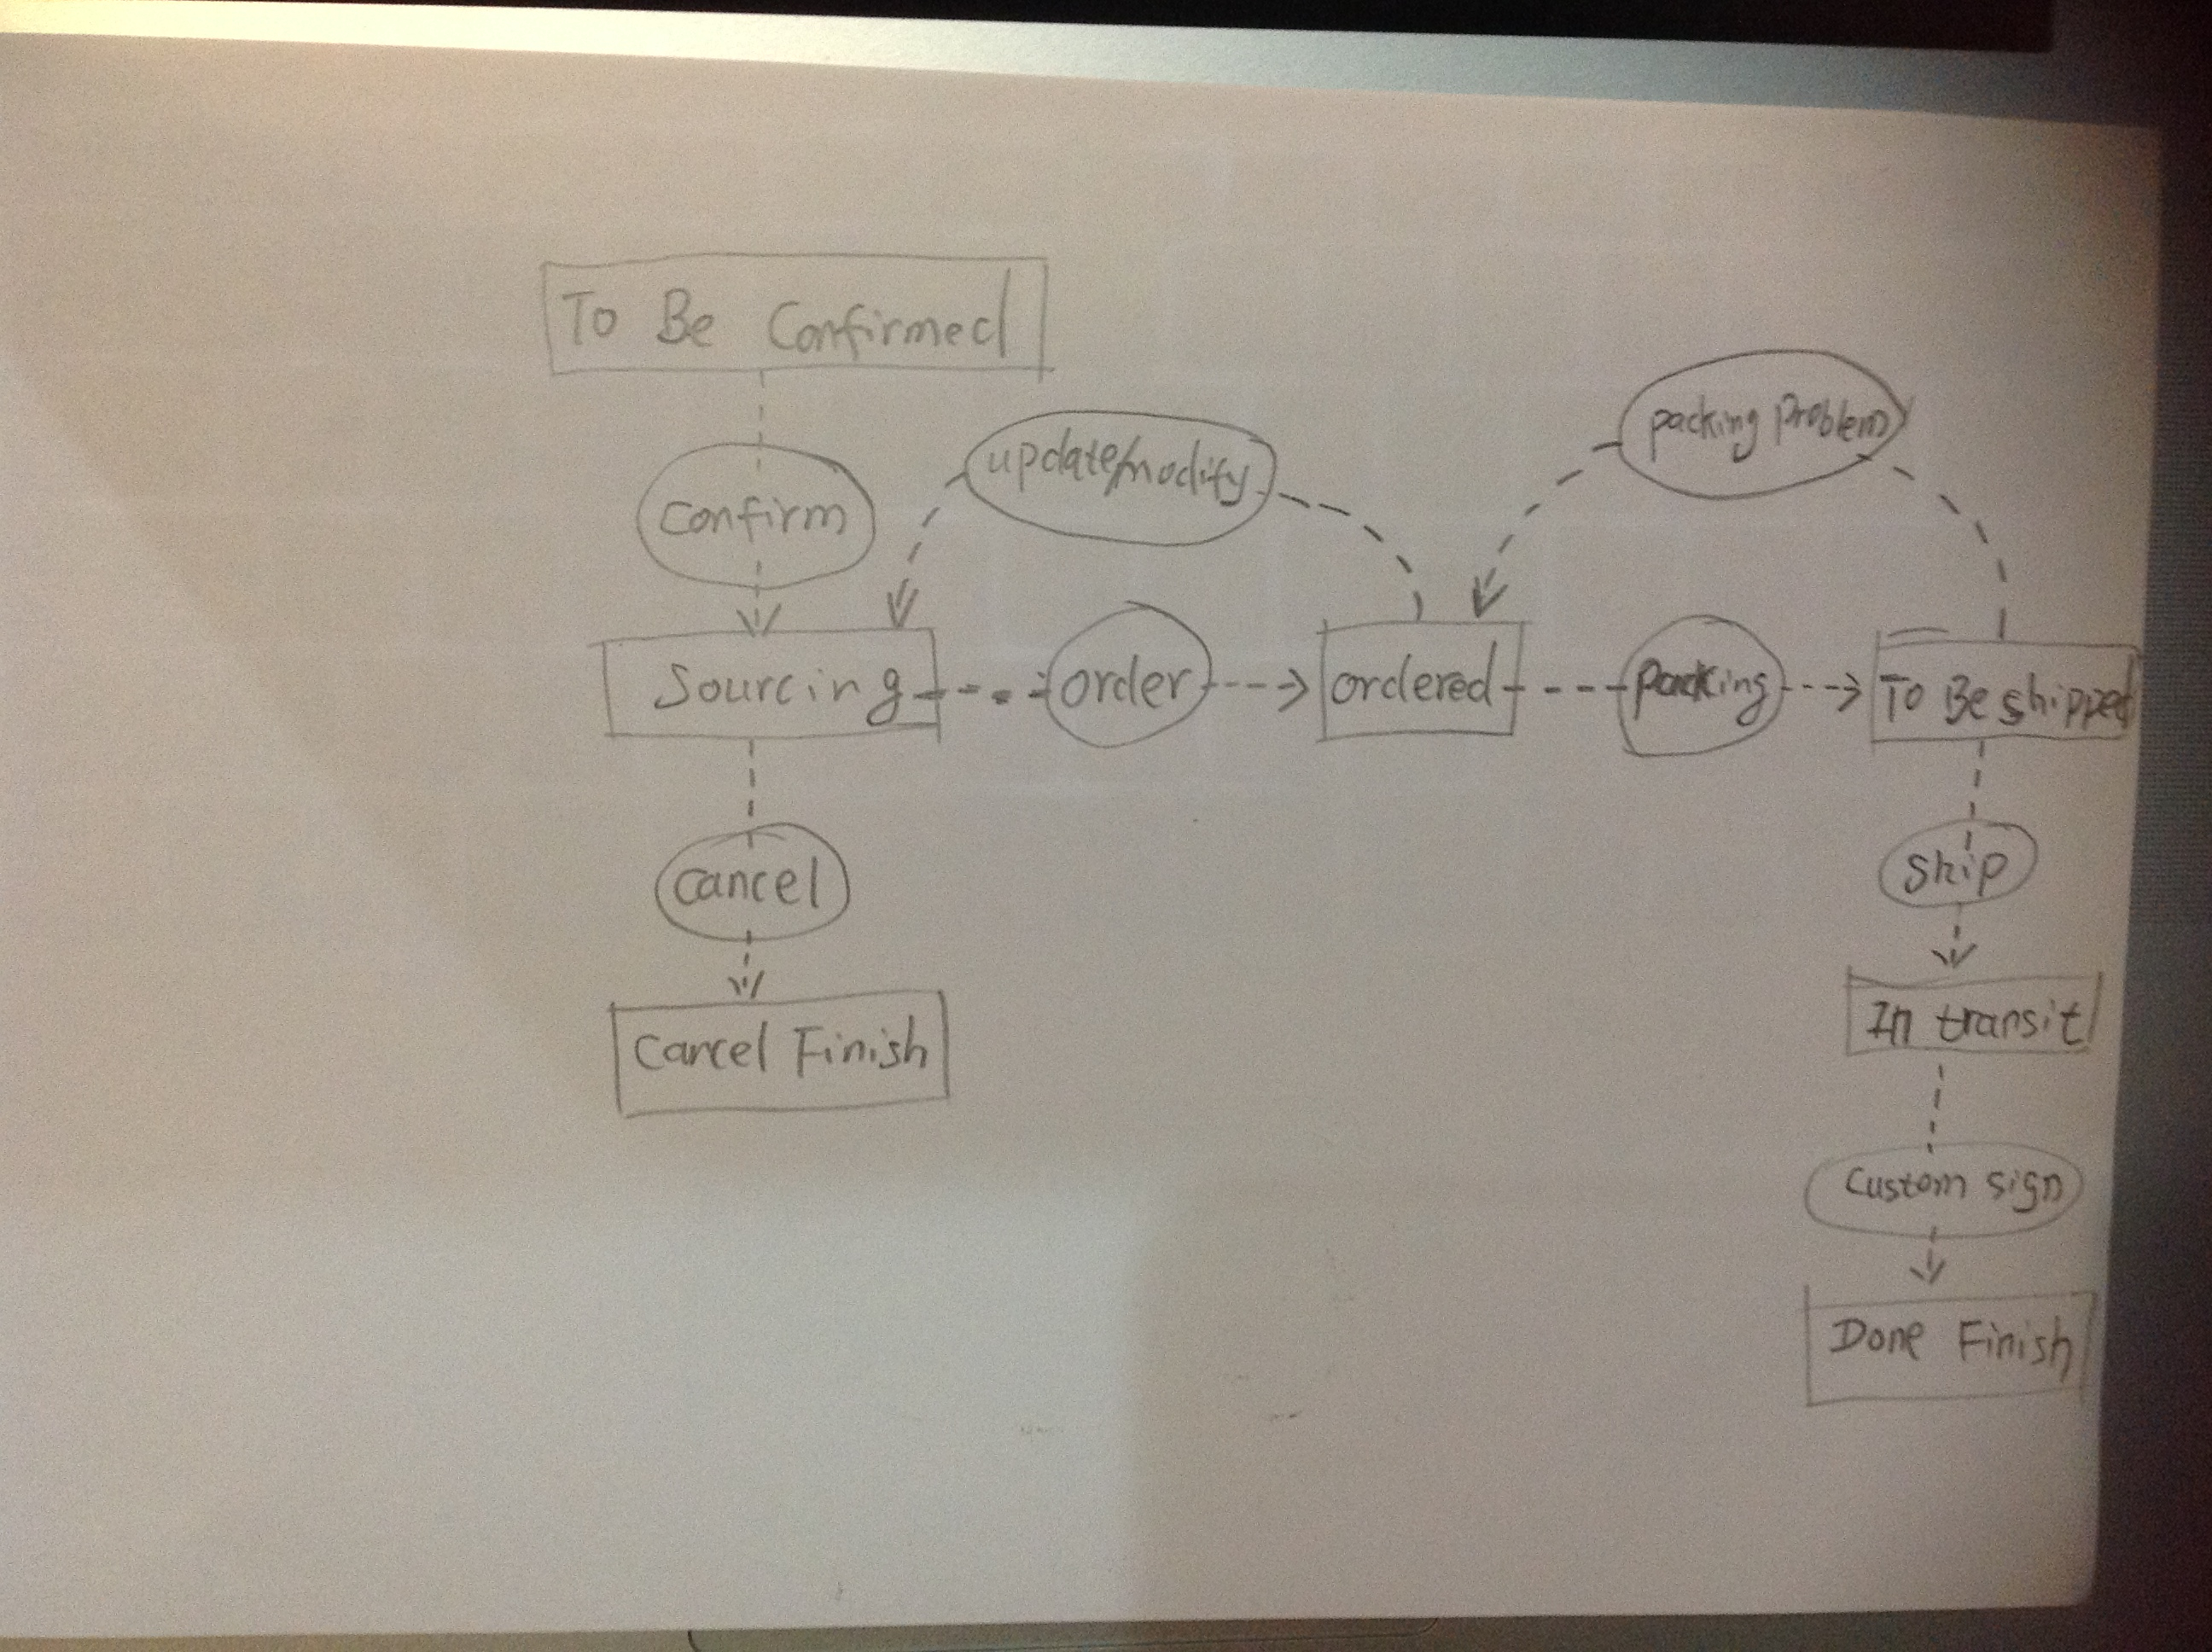 To Be Confirmed
confirm
update/modify
packing problem
Sourcing
order
ordered
packing
To Be shipped
cancel
ship
Cancel Finish
In transit
Custom sign
Done Finish